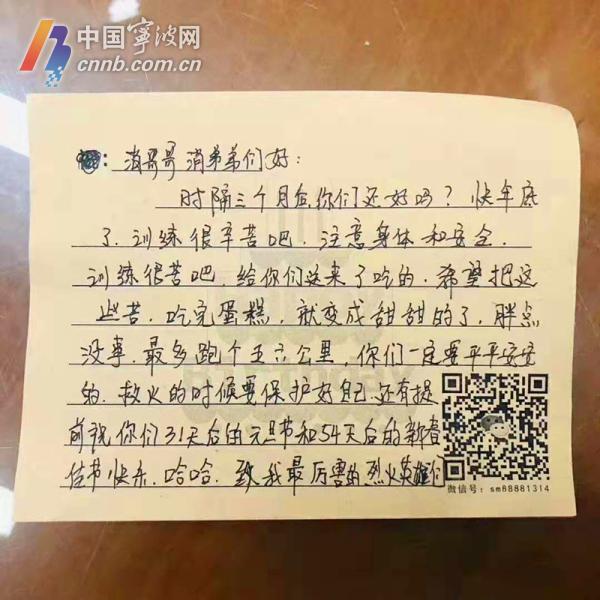 中国宁波网
cnnb.com.cn
：消哥哥 消弟弟们好：
时隔三个月后,你们还好吗？快年底
了.训练很辛苦吧.注意身体和安全.
训练很苦吧.给你们送来了吃的.希望把这
些苦.吃完蛋糕.就变成甜甜的了.胖点
没事.最多跑个五六公里,你们一定要平平安安
的.救火的时候要保护好自己.还有提
前祝你们31天后的元旦节和54天后的新春
佳节快乐.哈哈.致我最厉害的烈火英雄们
微信号：sm88881314